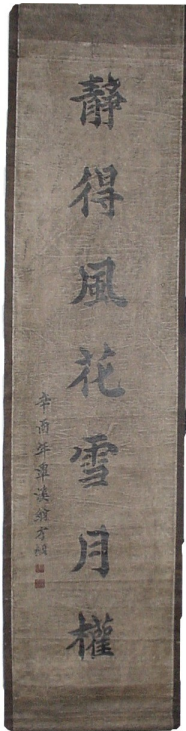 靜得風花雪月權
辛酉年覃溪翁方綱